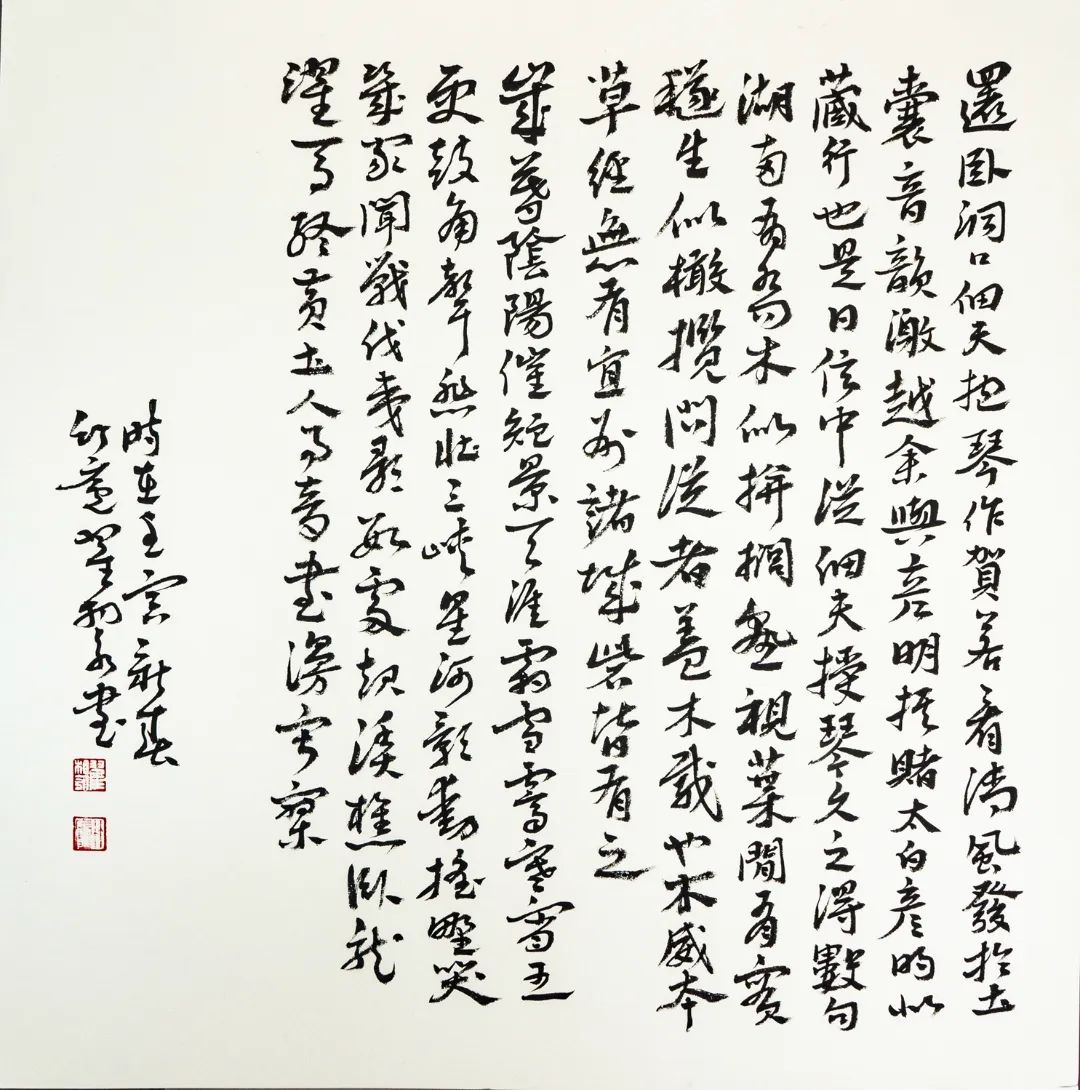 還臥洞口細夫抱琴作賀若有清風發於土
囊音韻激越余與彦明賭太白彦明似
藏行也是日信中從細夫授琴久之得數句
湖南有喬木似拼櫚熟視葉間有實
穟生似橄欖問從者蓋木威也木威本
草經無有宜州諸城砦皆有之
歲暮陰陽催短景天涯霜雪霽寒宵五
更鼓角聲悲壯三峽星河影動搖野哭
幾家聞戰伐夷歌數處起漁樵臥龍
躍馬終黃土人事音書漫寂寥
時在壬寅新春
翟書